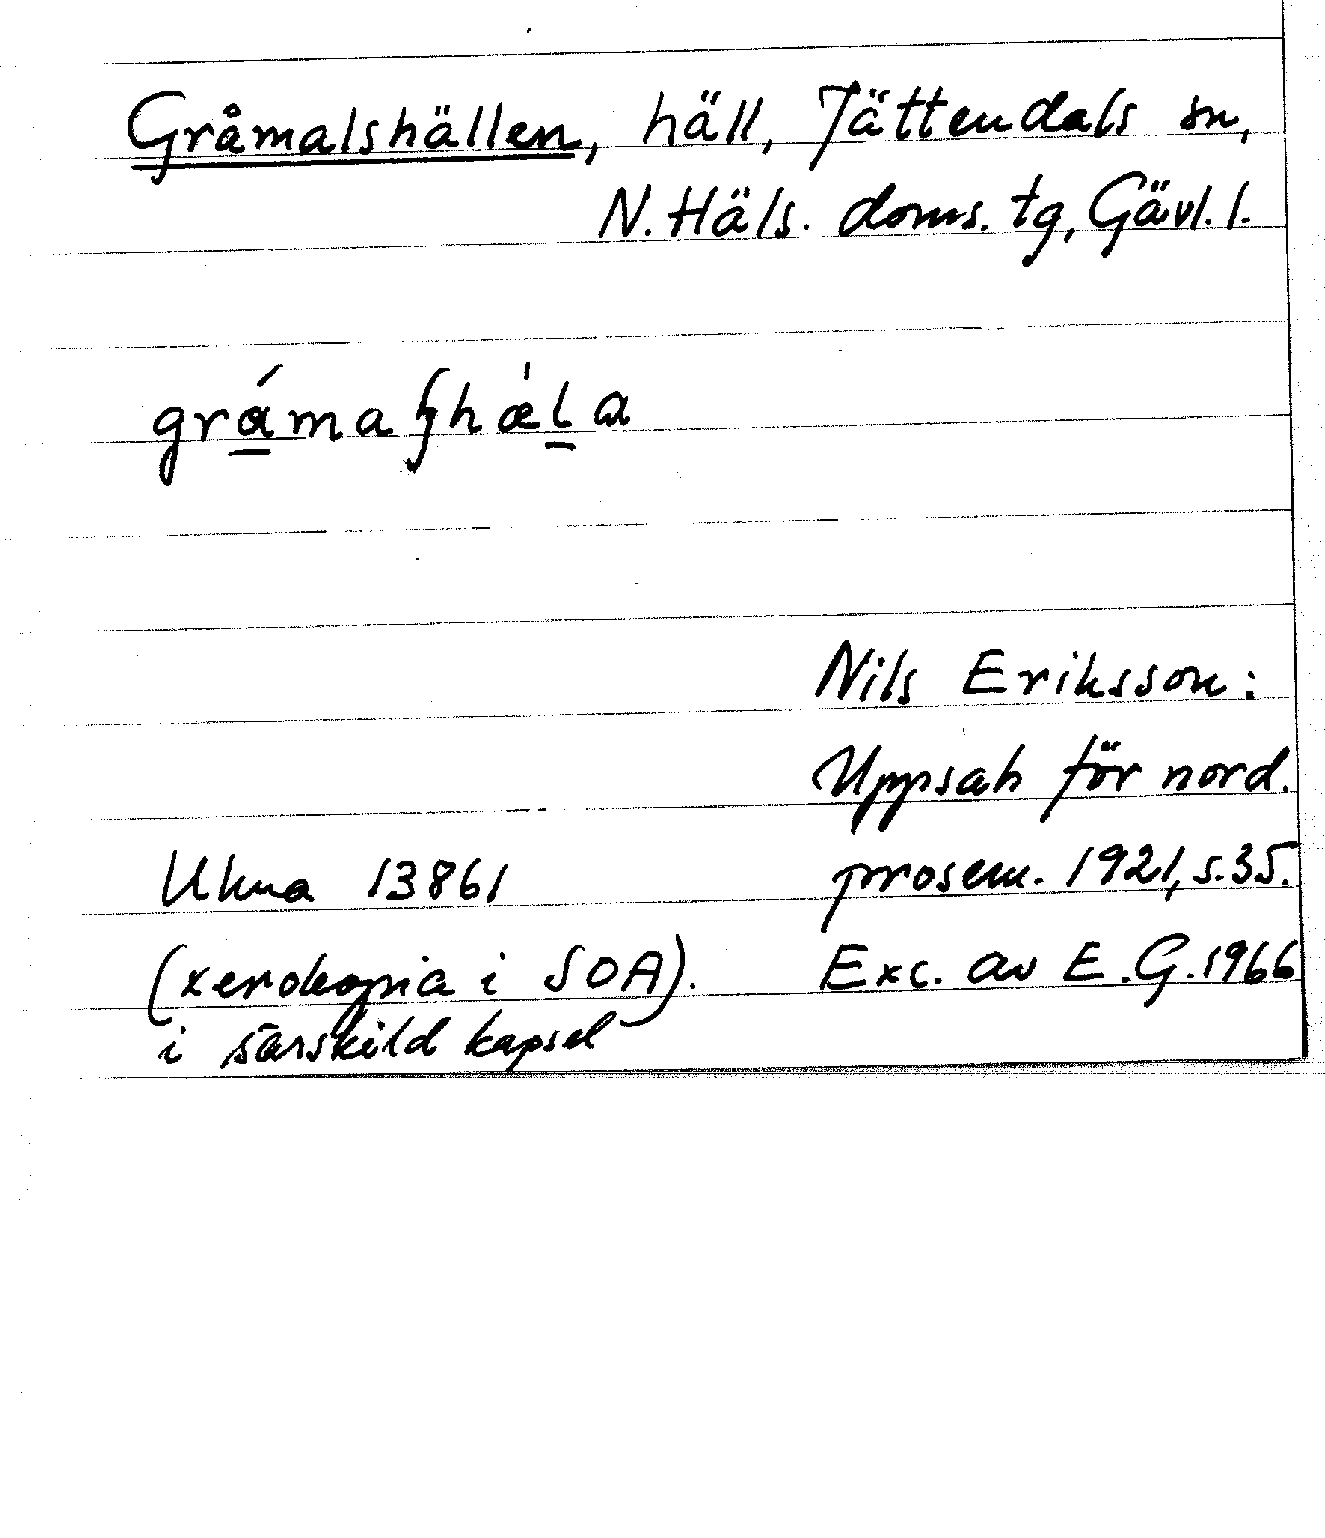 Gråmalshällen, häll, Jättendals sn,
N. Häls. doms. tg, Gävl. l.
Nils Eriksson:
Uppsats för nord.
Ukna 13861 prosem. 1921, s. 35.
(xerokopia i SOA). Exc. av E. G. 1966
i särskild kapsel